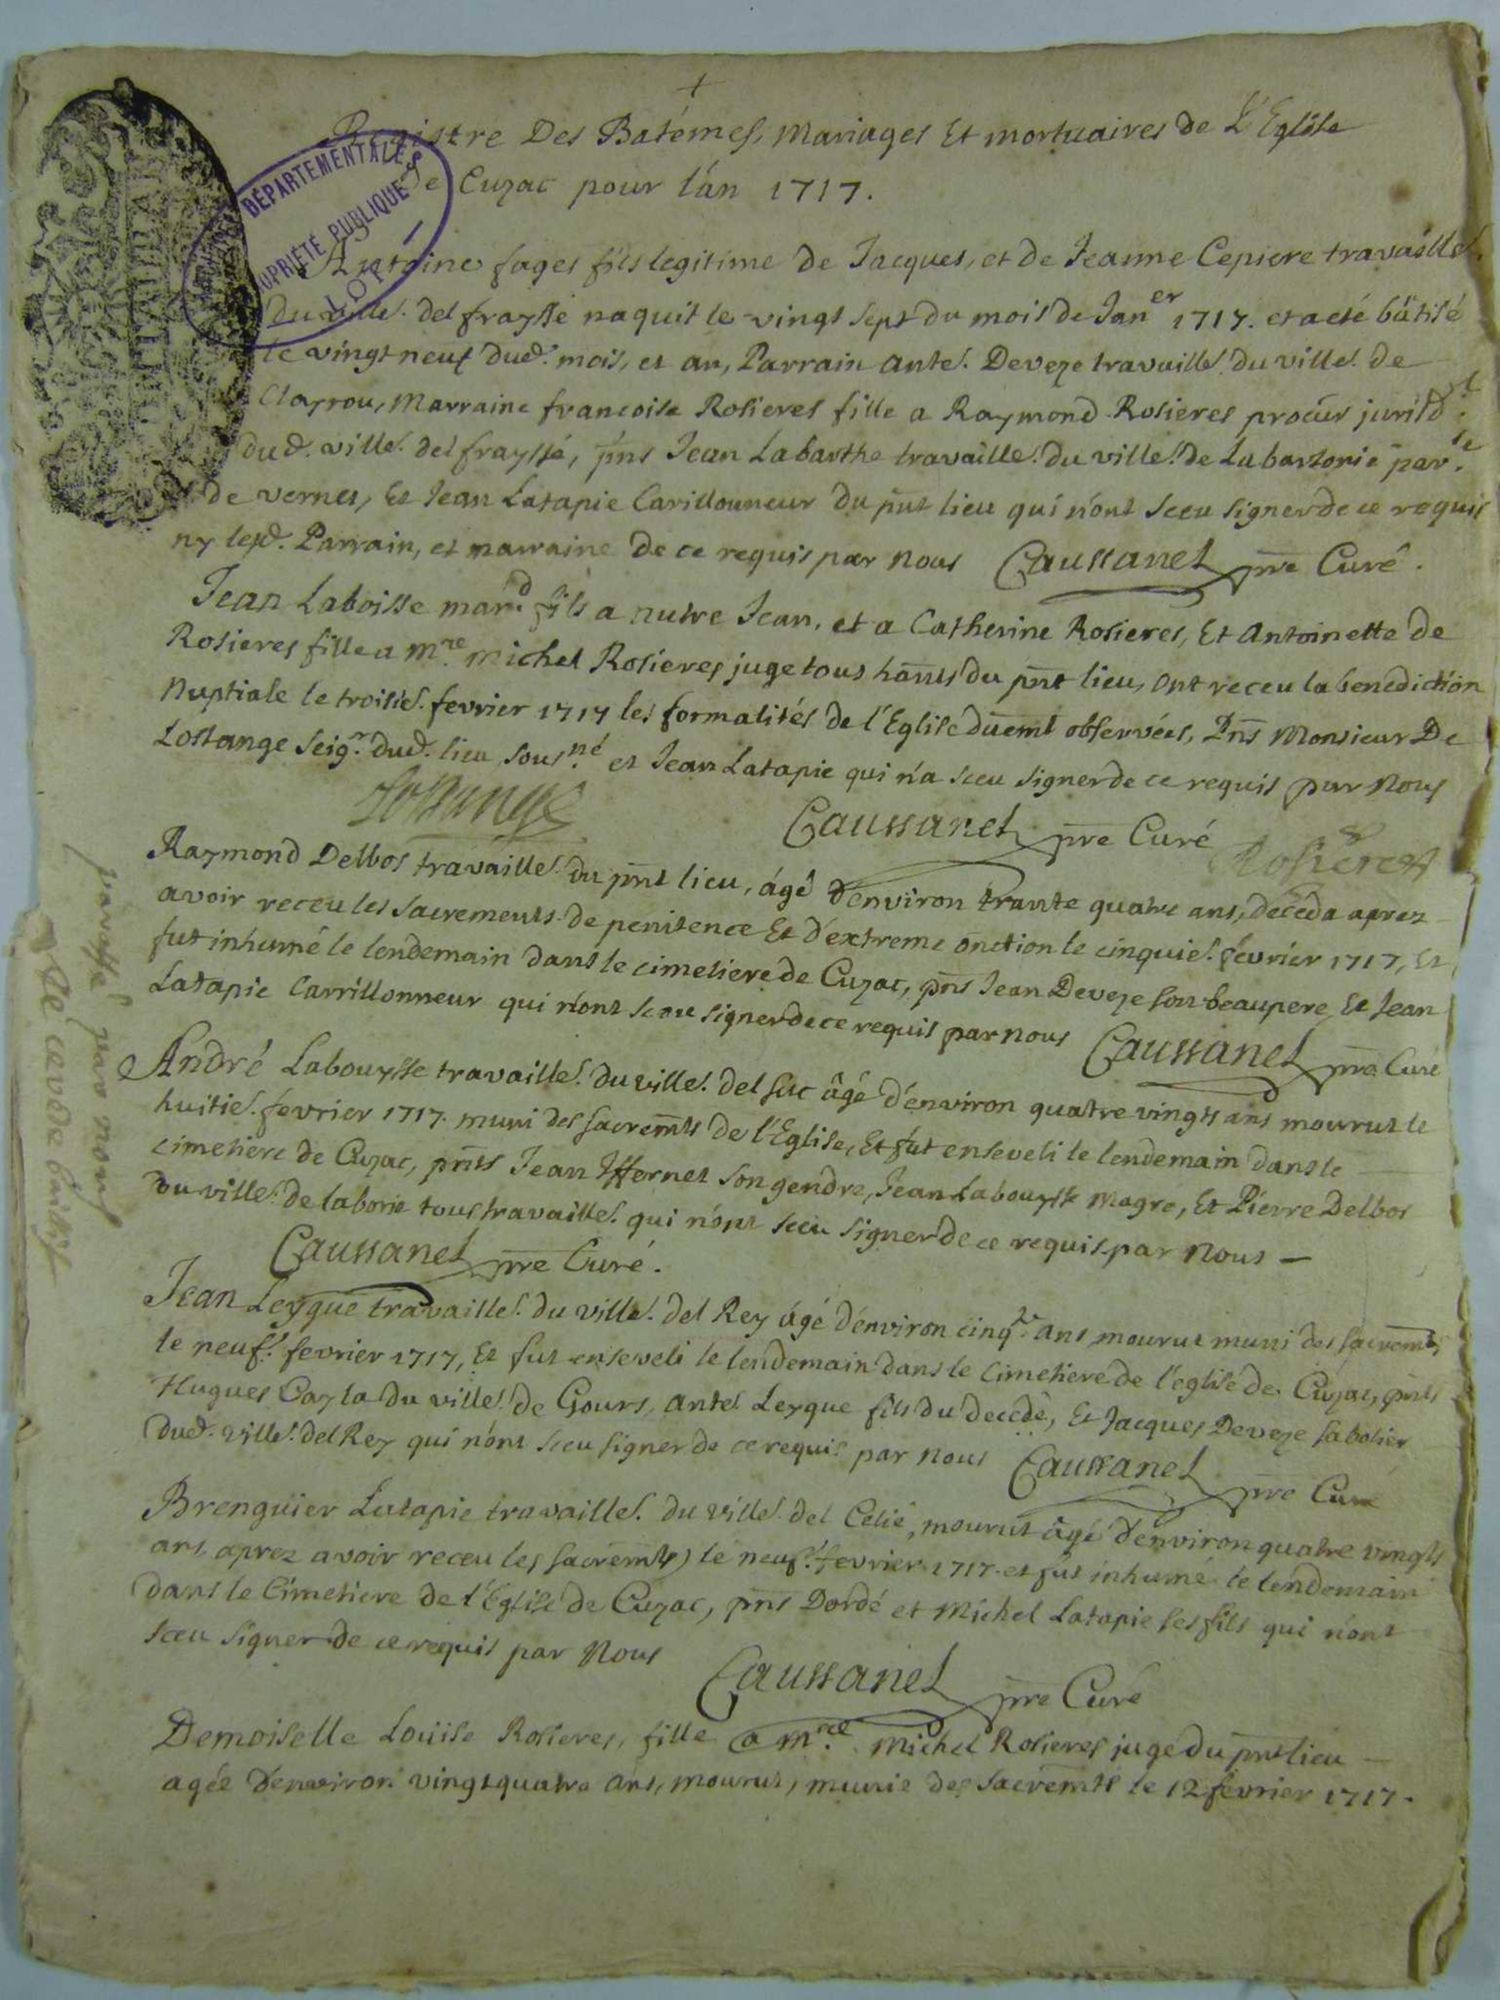 +
Registre Des Batémes, Mariages Et mortuaires de L'Eglise
de Cuzac pour l'an 1717.
DÉPARTEMENTALES
PROPRIÉTÉ PUBLIQUE
LOT
Antoine fages fils legitime de Jacques, et de Jeanne Cepiere travaille.
Du ville. del fraysse naquit le vingt sept du mois de Janer 1717. et a eté bátisé
le vingt neuf dud. mois, et an, Parrain ante. Deveze travaille. du ville. de
Clayrou, Marraine francoise Rosieres fille a Raymond Rosieres procúrs jurisd.
dud. ville. del fraysse, pn̄s Jean Labarthe travaille. du ville. de Labartonie par.se
de vernet, Et Jean Latapie Carillouneur du pn̄t lieu qui n'ont sceu signer de ce requis
ny lesd. Parrain, et marraine de ce requis par nous Caussanel pre Curé.
Jean Laboisse mar.d fils a autre Jean, et a Catherine Rosieres, Et Antoinette de
Rosieres fille a M.re Michel Rosieres juge tous han̄ts du pn̄t lieu, ont receu la benediction
Nuptiale le troisié. fevrier 1717 les formalités de l'Eglise duemt observées, Pn̄s Monsieur De
Lostange seig.r dud. lieu sous.né et Jean Latapie qui n'a sceu signer de ce requis par Nous
Lostange Caussanel pre Curé Rosieres
Raymond Delbos travaille. du pn̄t lieu, ágé d'environ trante quatre ans, deceda aprez
avoir receu les sacrements de penitence Et d'extreme onction le cinquie. fevrier 1717, Et
fut inhumé le lendemain dans le cimetiere de Cuzac, pn̄s Jean Deveze son beaupere Et Jean
Latapie Carrillonneur qui n'ont sceu signer de ce requis par nous Caussanel pre Curé
André Labouysse travaille. du ville. del suc âgé d'environ quatre vingts ans mourut le
huitie. fevrier 1717. muni des sacrem̄ts de l'Eglise, Et fut enseveli le lendemain dans le
cimetiere de Cuzac, pn̄ts Jean Iffernet son gendre, Jean Labouysse Magre, Et Pierre Delbos
du ville. de laborie tous travaille. qui n'ont sceu signer de ce requis par Nous —
Caussanel pre Curé.
Jean Leygue travaille. du ville. del Rey ágé d'environ cinq.te ans mourut muni des sacrem̄ts
le neuf.e fevrier 1717, Et fut enseveli le lendemain dans le Cimetiere de l'eglise de Cuzac, pn̄ts
Hugues Cayla du ville. de Gours, Ante. Leygue fils du decedé, Et Jacques Deveze sabotier
dud. ville. del Rey qui n'ont sceu signer de ce requis par nous Caussanel pre Curé
Brenguier Latapie travaille. du ville. del Celié, mourut âgé d'environ quatre vingts
ans aprez avoir receu les sacrem̄ts le neuf.e fevrier 1717. et fut inhumé le lendemain
dans le Cimetiere de l'Eglise de Cuzac, pn̄s Dordé et Michel Latapie ses fils qui n'ont
sceu signer de ce requis par Nous Caussanel pre Curé
Demoiselle Loüise Rosieres, fille a M.re Michel Rosieres juge du pn̄t lieu —
agée d'environ vingt quatre ans, mourut, munie des sacrem̄ts le 12 fevrier 1717.
par nous